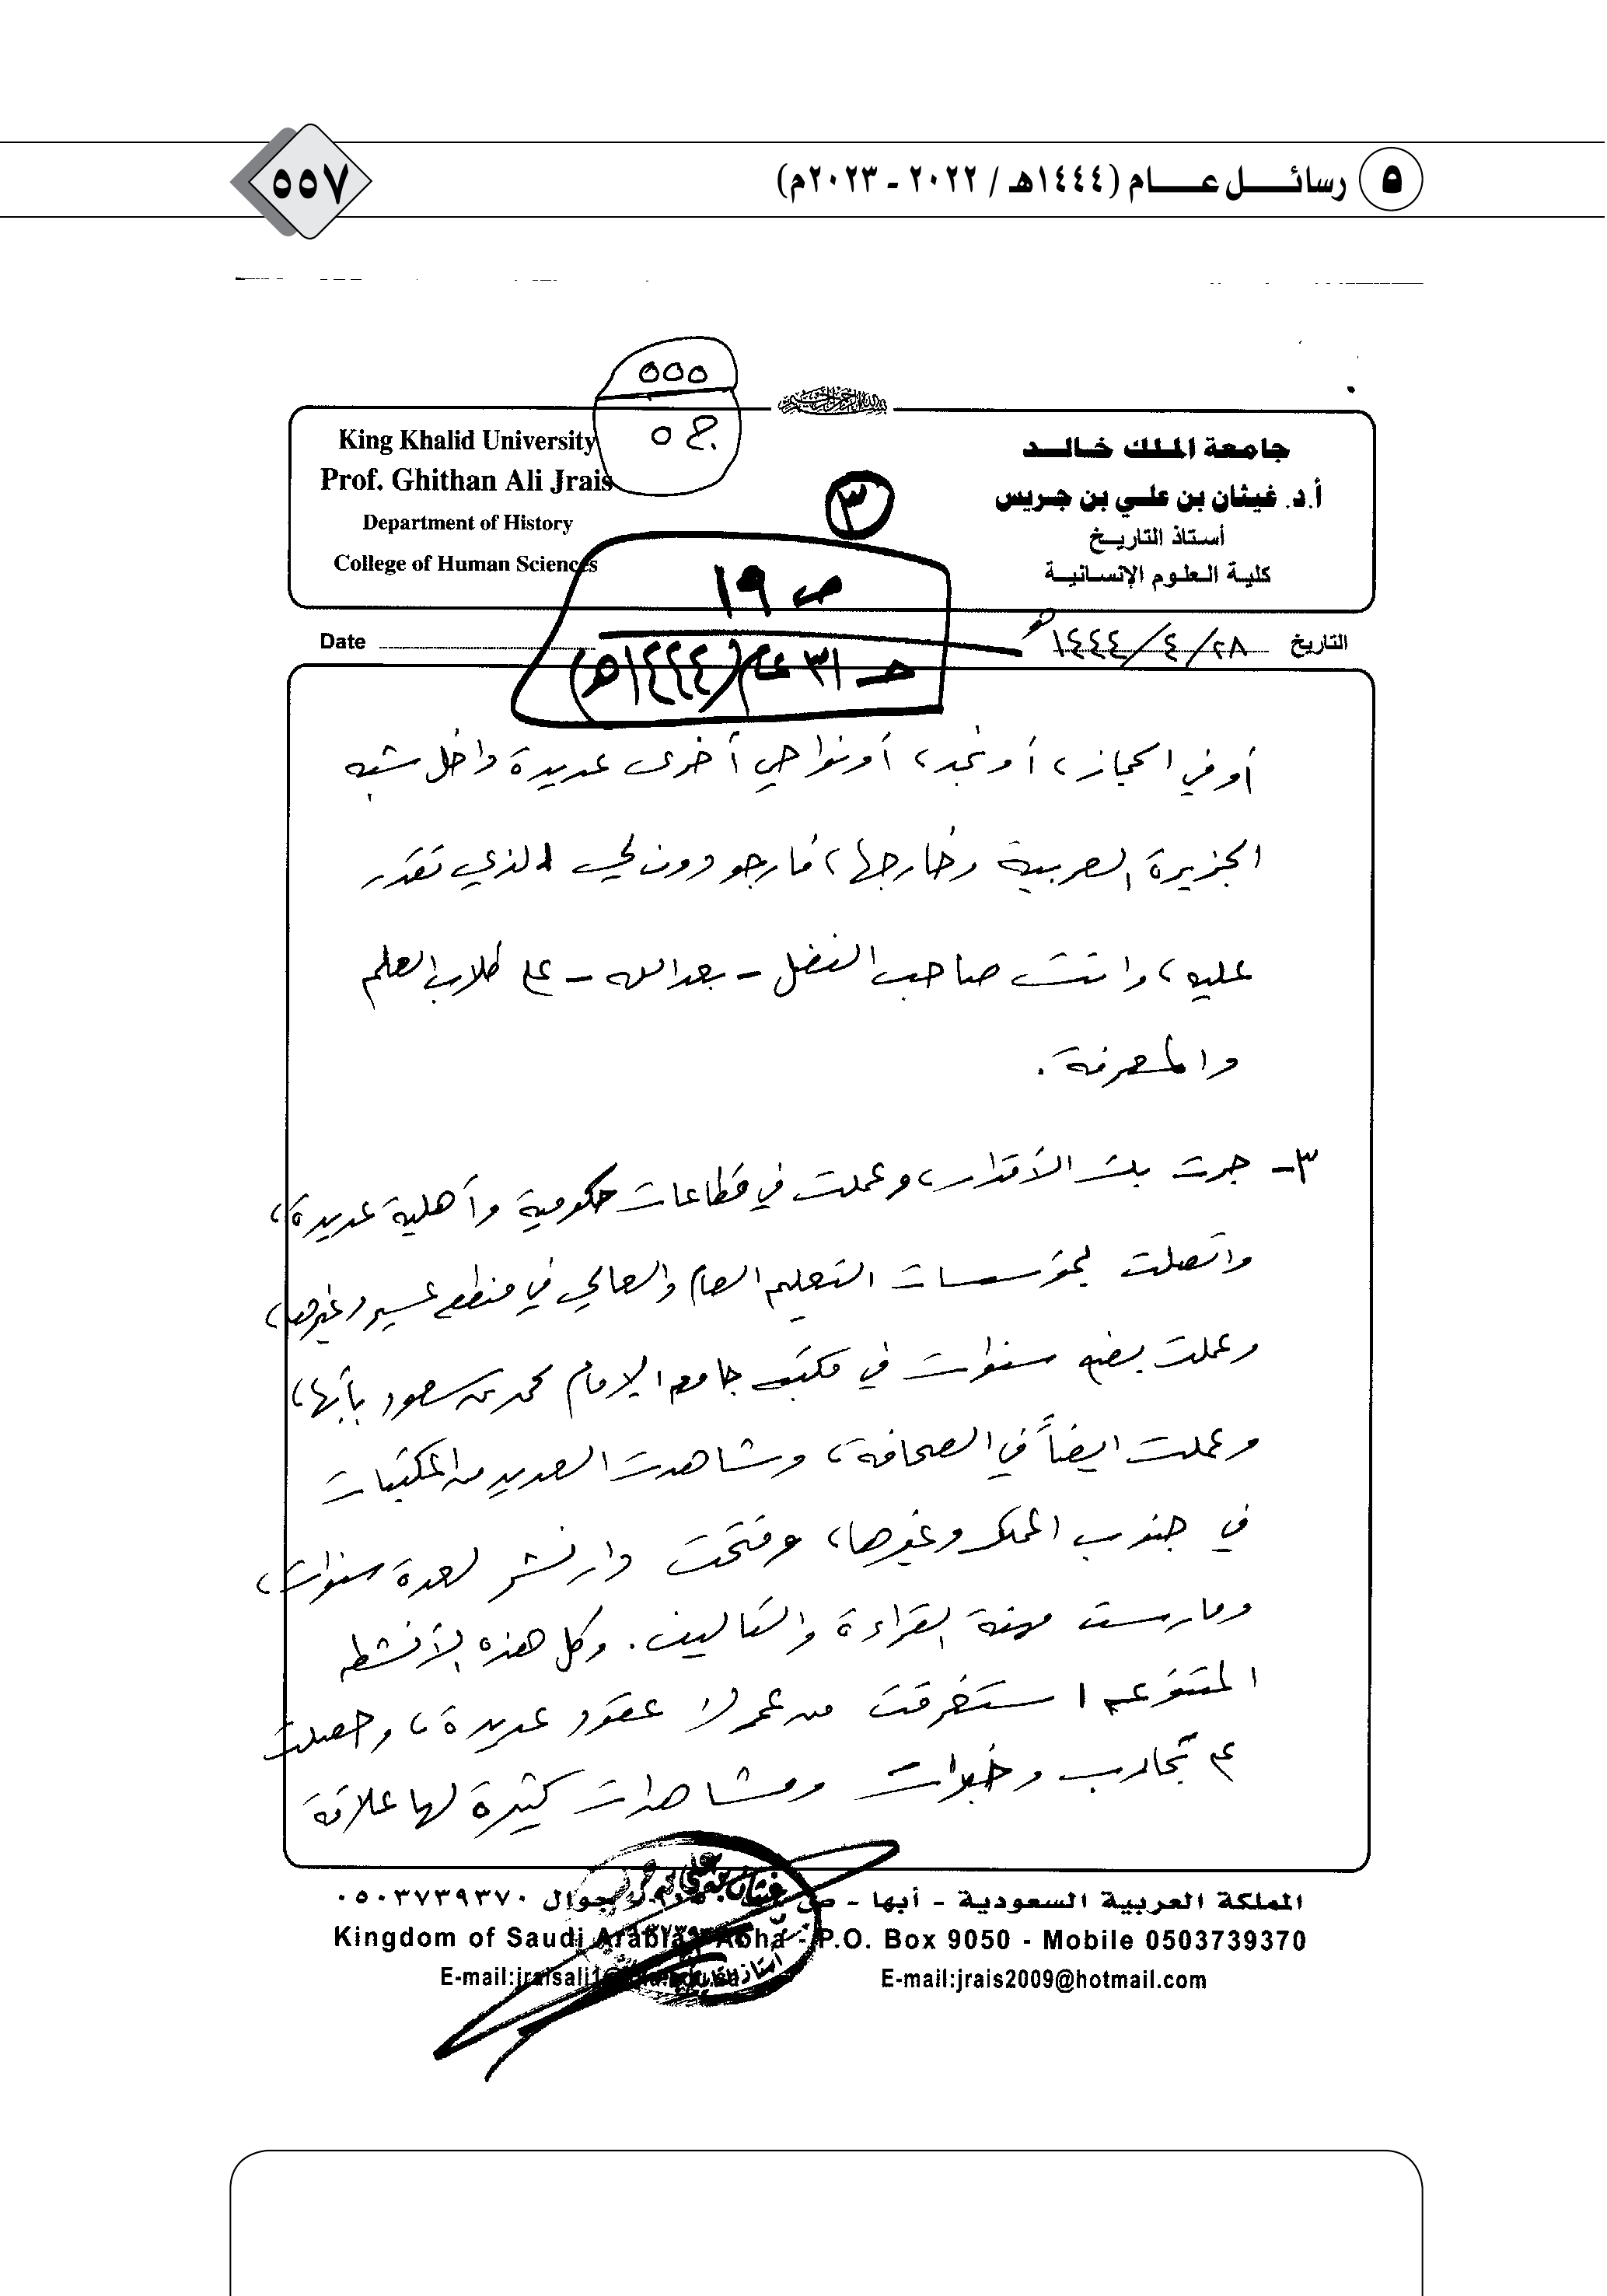 ٥ رسائل عام (١٤٤٤هـ / ٢٠٢٢ - ٢٠٢٣م)
٥٥٧
٥٥٥
ج ٥
King Khalid University
Prof. Ghithan Ali Jrais
Department of History
College of Human Sciences
جامعة الملك خالد
أ.د. غيثان بن علي بن جريس
أستاذ التاريخ
كلية العلوم الإنسانية
٣
ص ١٩
حـ ٣١ عام (١٤٤٤هـ)
Date
التاريخ ٢٨/٤/١٤٤٤هـ
أو في الحجاز، أو نجد، أو نواحي أخرى عديدة داخل شبه
الجزيرة العربية وخارجها، فأرجو دون لي الذي تقدر
عليه، وانت صاحب الفضل - بعد الله - على طلاب العلم
والمعرفة.
٣- جرت بك الأقدار، وعملت في قطاعات حكومية وأهلية عديدة،
واتصلت بمؤسسات التعليم العام والعالي في منطقة عسير وغيرها،
وعملت بضع سنوات في مكتبة جامعة الإمام محمد بن سعود بأبها،
وعملت ايضاً في الصحافة، وشاهدت العديد من المكتبات
في جنوب المملكة وغيرها، وفتحت دار نشر لعدة سنوات،
ومارست مهنة القراءة والتأليف. وكل هذه الأنشطة
المتنوعة استغرقت من عمرك عقود عديدة، وحصلت
على تجارب وخبرات ومشاهدات كثيرة لها علاقة
المملكة العربية السعودية - أبها - ص جوال ٠٥٠٣٧٣٩٣٧٠
Kingdom of Saudi Arabia - Abha - P.O. Box 9050 - Mobile 0503739370
E-mail:jrais2009@hotmail.com